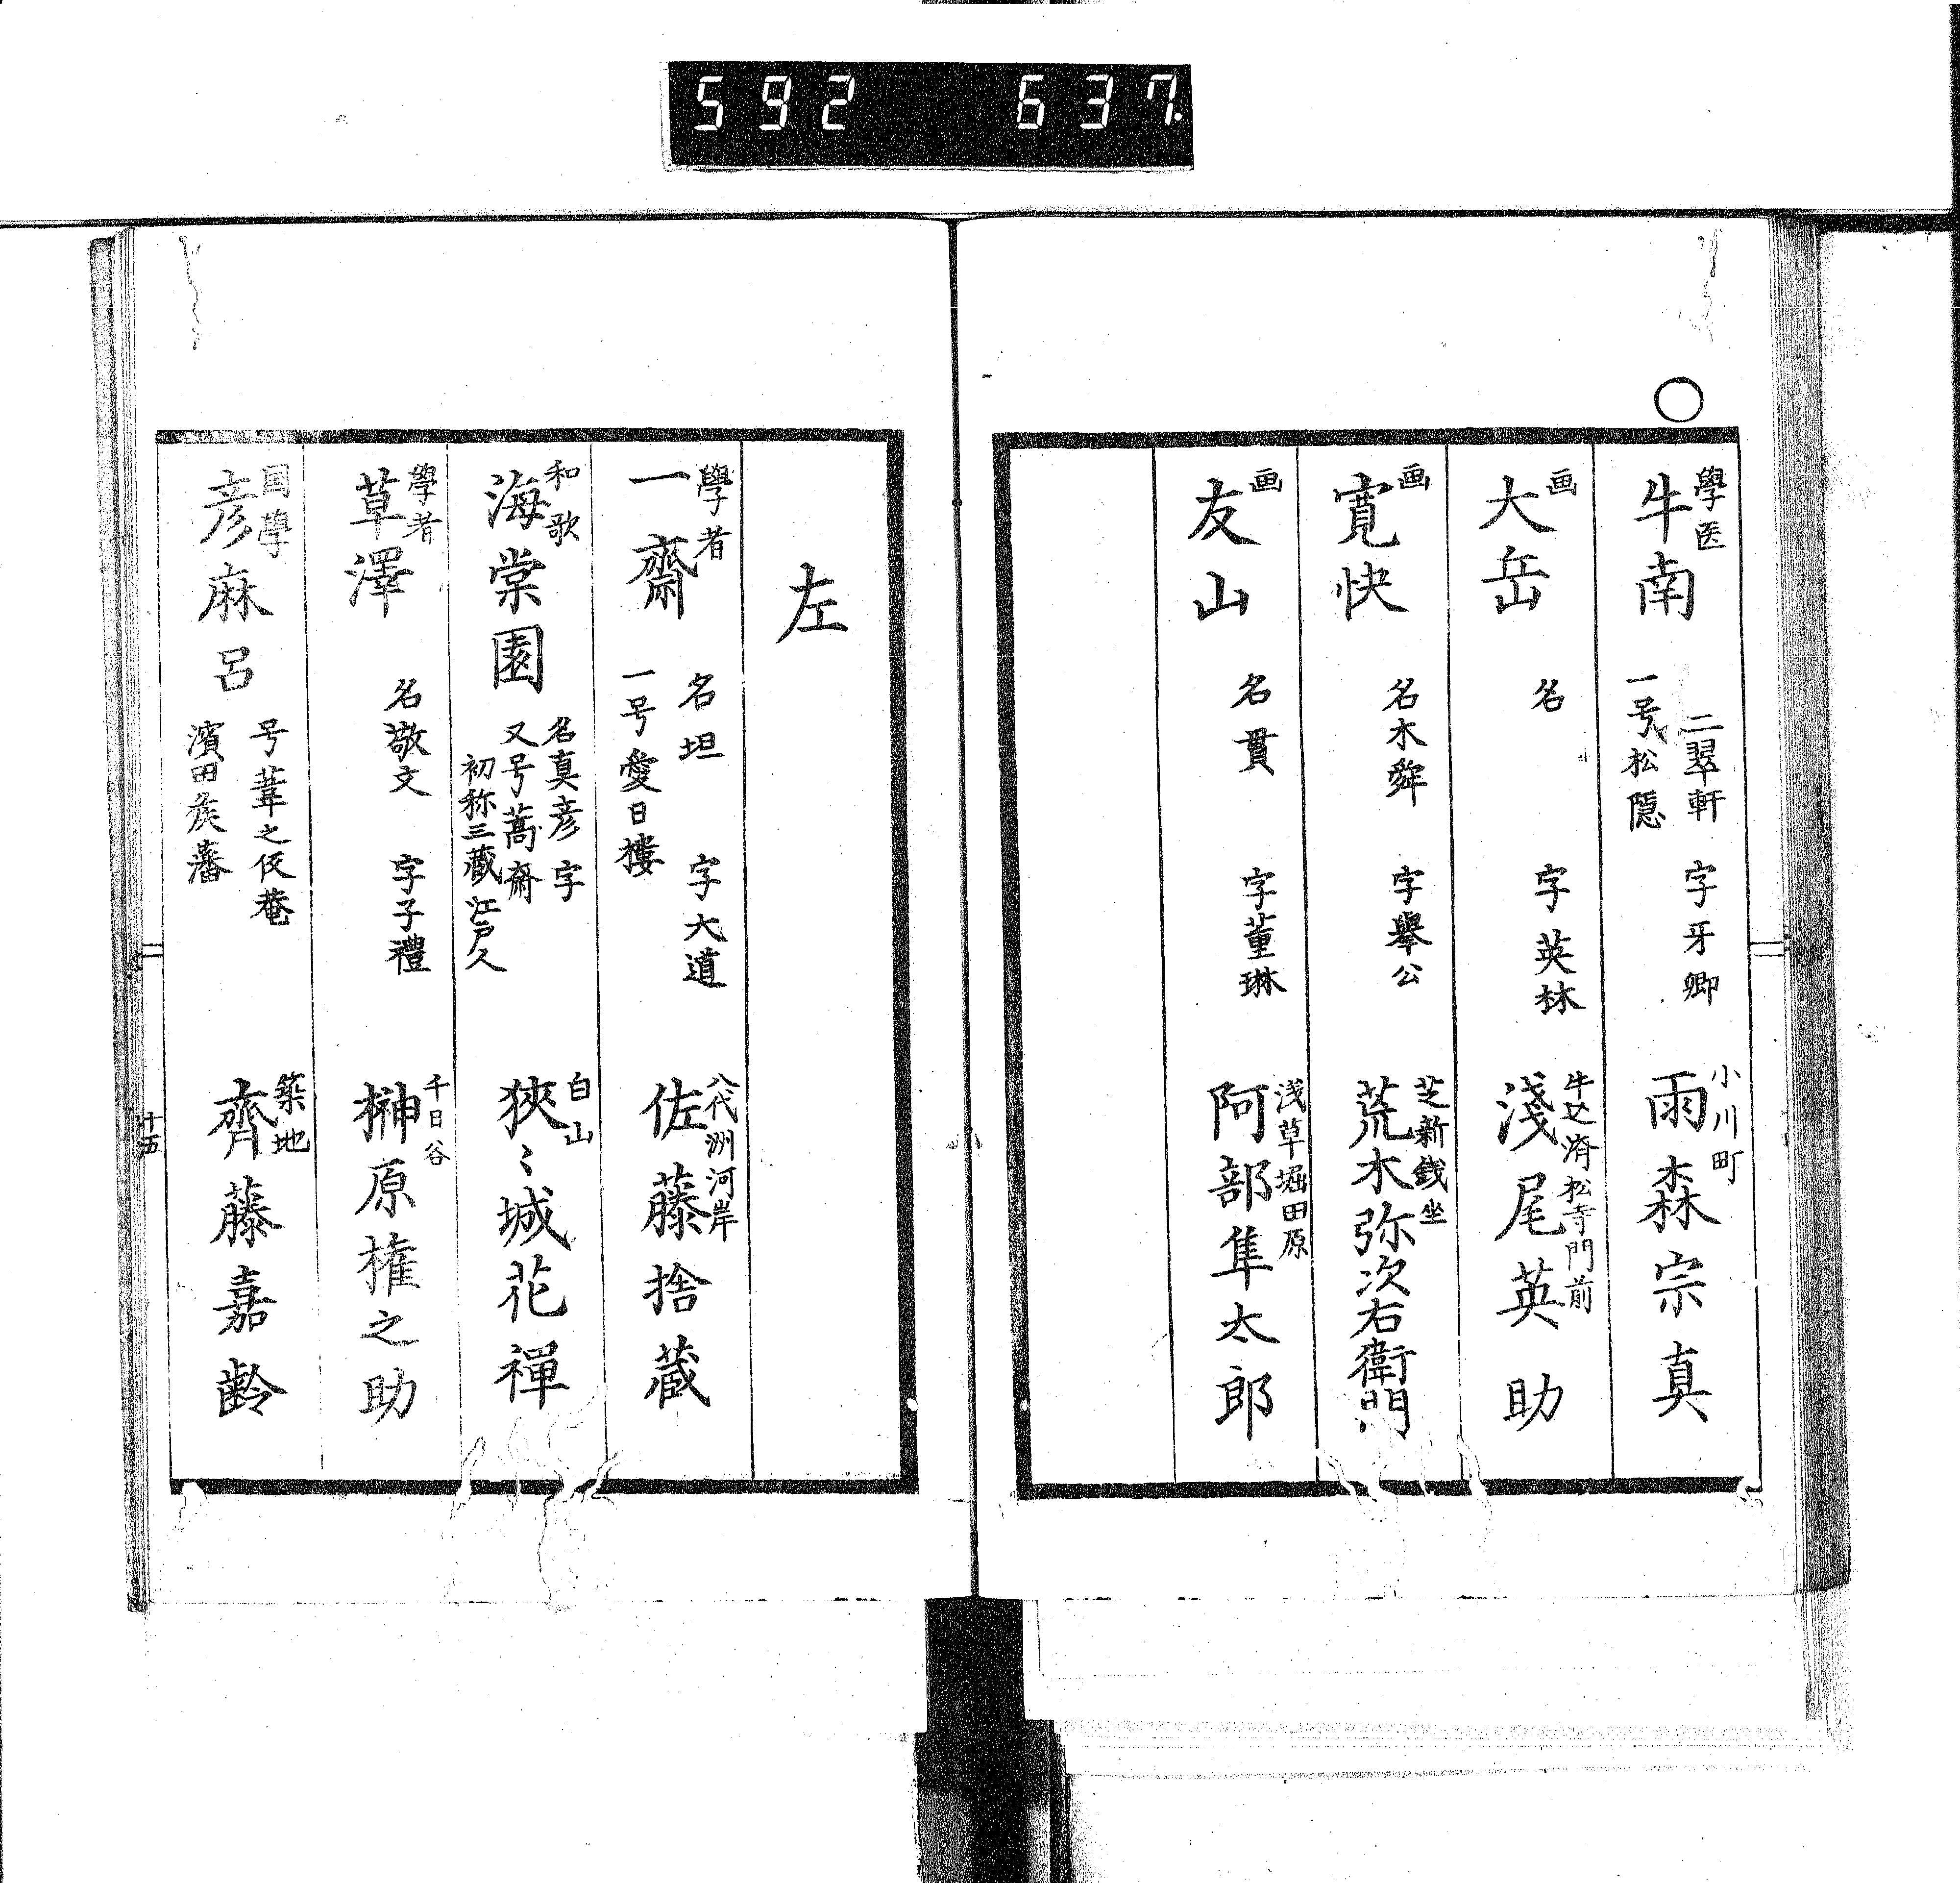 592 637
○
學医
牛南
二翠軒 字牙卿
一号松隠
小川町
雨森宗真
画
大岳
名 字英林
牛込済松寺門前
淺尾英助
画
寛快
名木舜 字擧公
芝新銭坐
荒木弥次右衛門
画
友山
名貫 字董琳
浅草堀田原
阿部隼太郎
左
學者
一齋
名坦 字大道
一号愛日樓
八代洲河岸
佐藤捨蔵
和歌
海棠園
名真彦字
又号蒿齋
初称三藏江戸人
白山
狹々城花禅
學者
草澤
名敬文 字子禮
千日谷
榊原権之助
国學
彦麻呂
号葦之仮菴
濱田矦藩
築地
齊藤嘉齢
十五